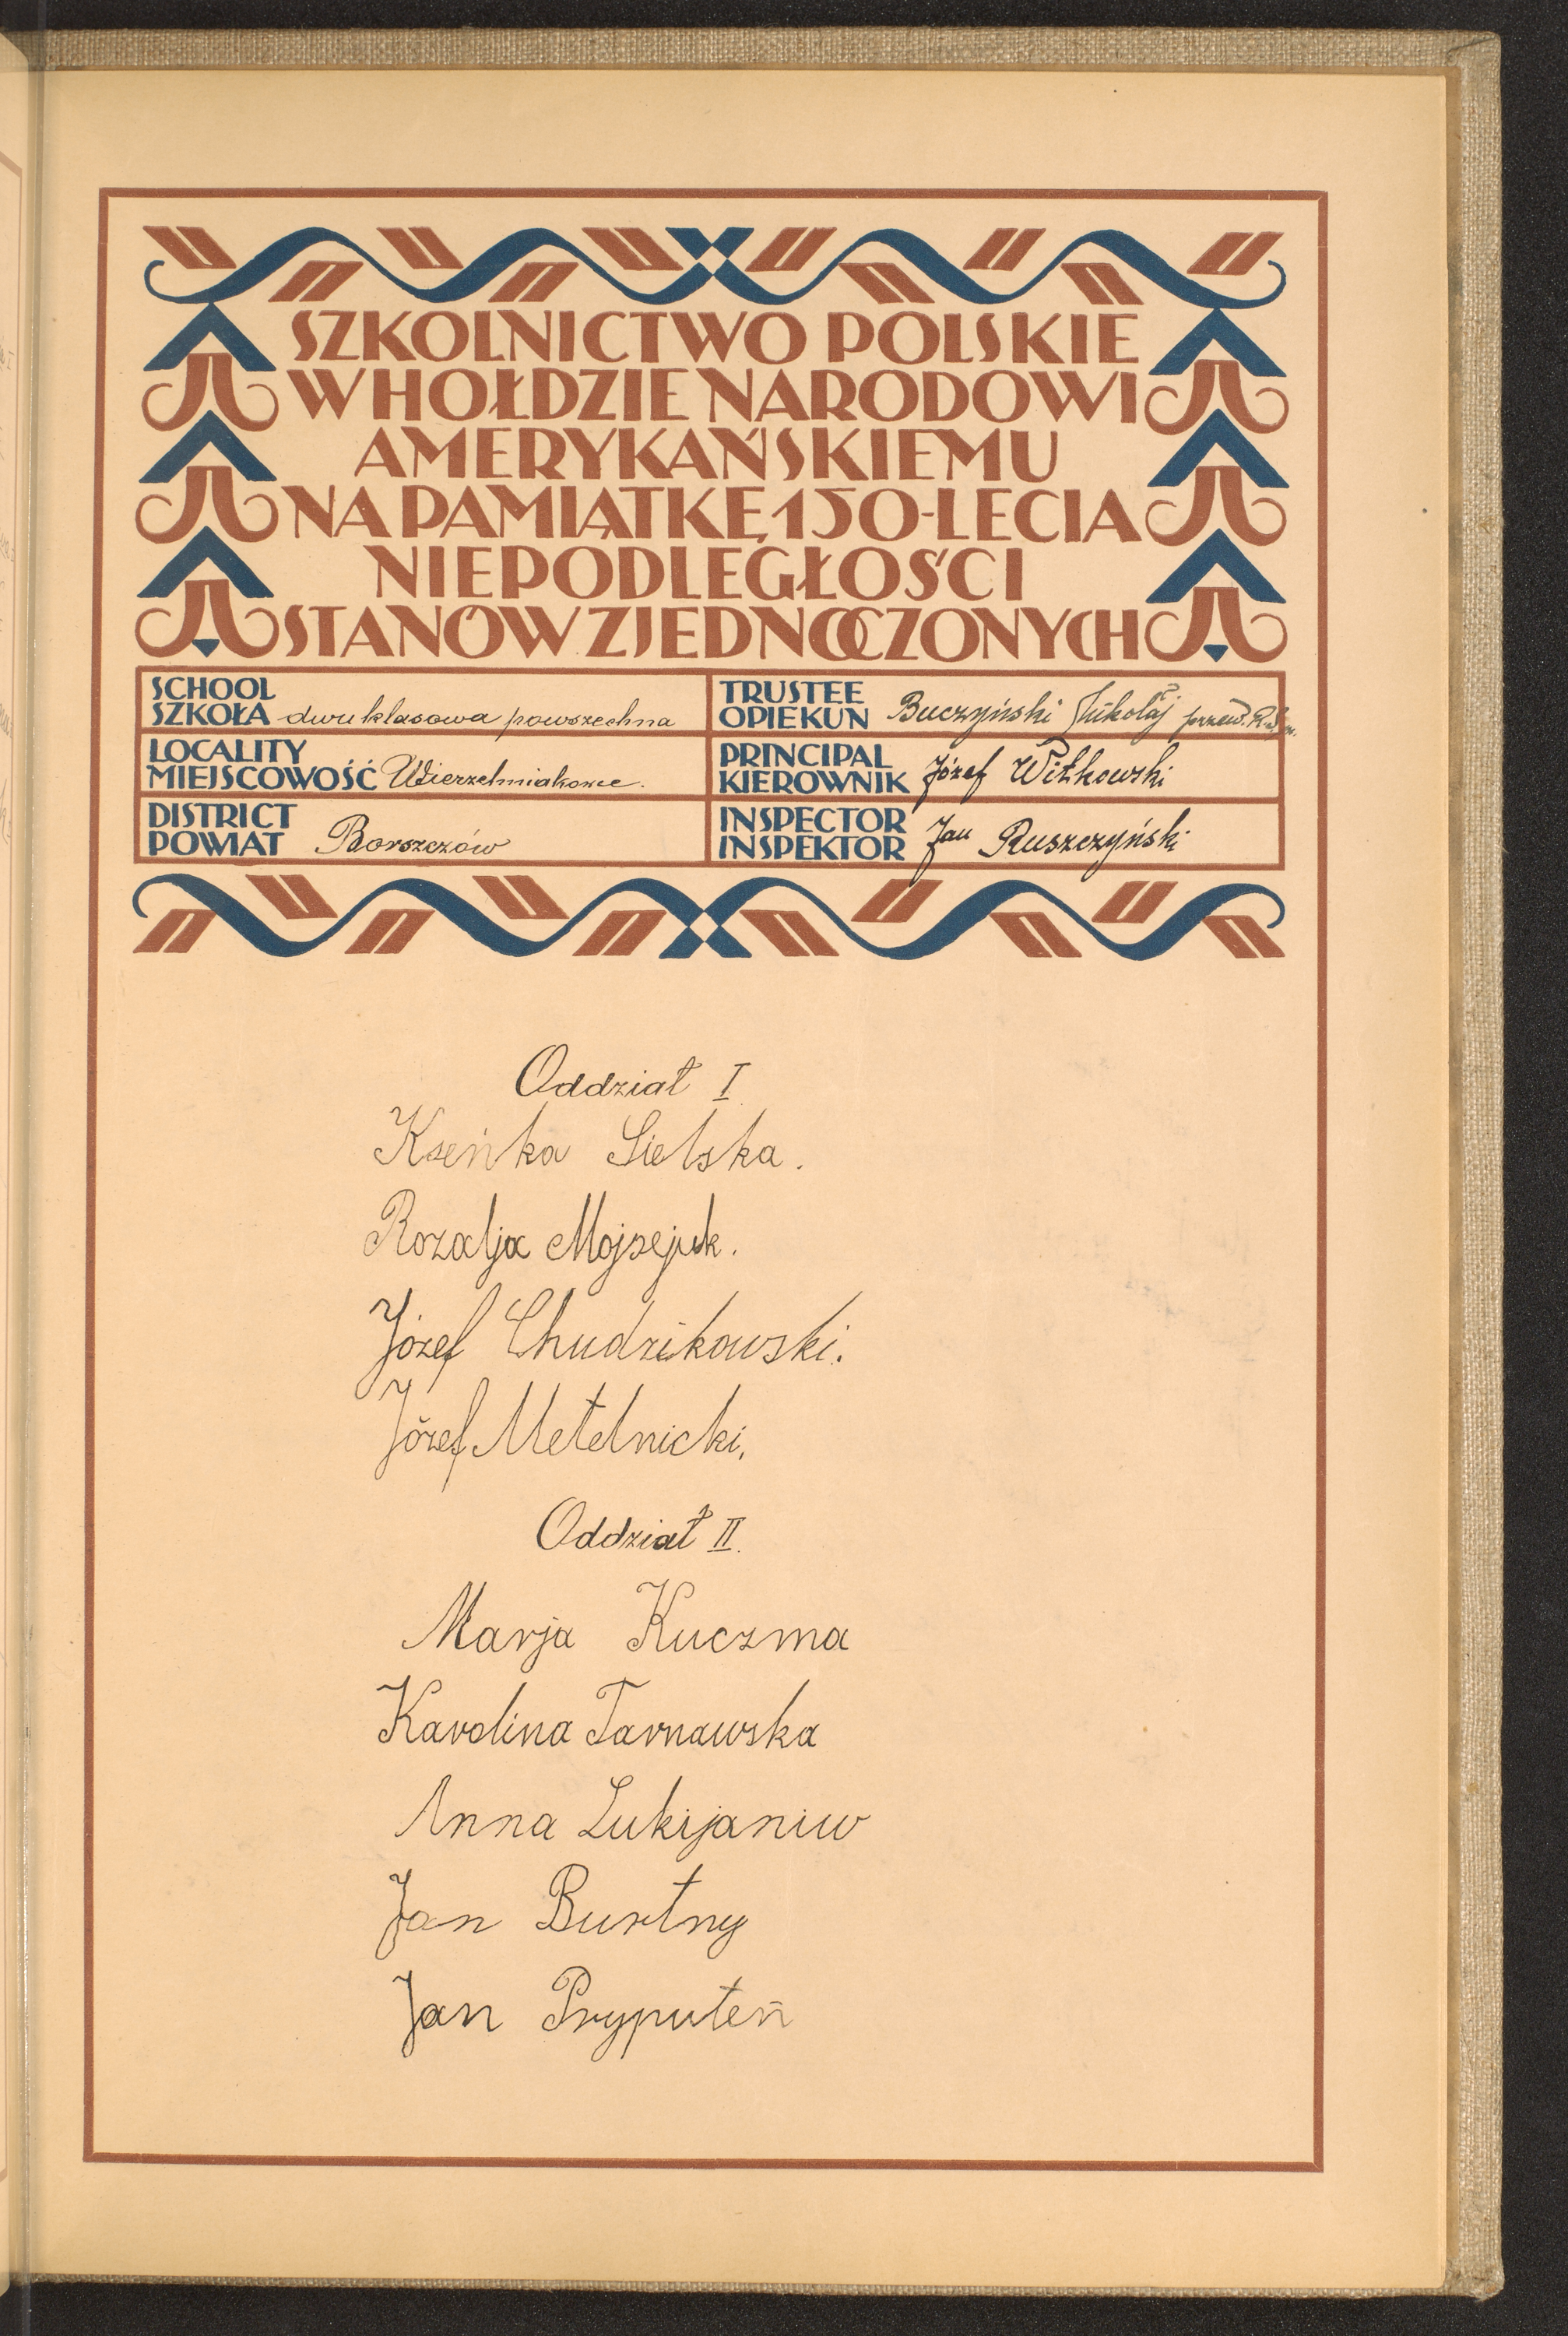 SZKOLNICTWO POLSKIE
W HOŁDZIE NARODOWI
AMERYKAŃSKIEMU
NA PAMIĄTKĘ 150-LECIA
NIEPODLEGŁOŚCI
STANÓW ZJEDNOCZONYCH
SCHOOL
SZKOŁA dwuklasowa powszechna
TRUSTEE
OPIEKUN Buczyński Mikołaj przew.
LOCALITY
MIEJSCOWOŚĆ Wierzchniakowce.
PRINCIPAL
KIEROWNIK Józef Witkowski
DISTRICT
POWIAT Borszczów
INSPECTOR
INSPEKTOR Jan Ruszczyński
Oddział I
Kseńka Sielska.
Rozalja Mojsejuk.
Józef Chudzikowski.
Józef Metelnicki.
Oddział II.
Marja Kuczma
Karolina Tarnawska
Anna Lukijaniw
Jan Burtny
Jan Pryputeń